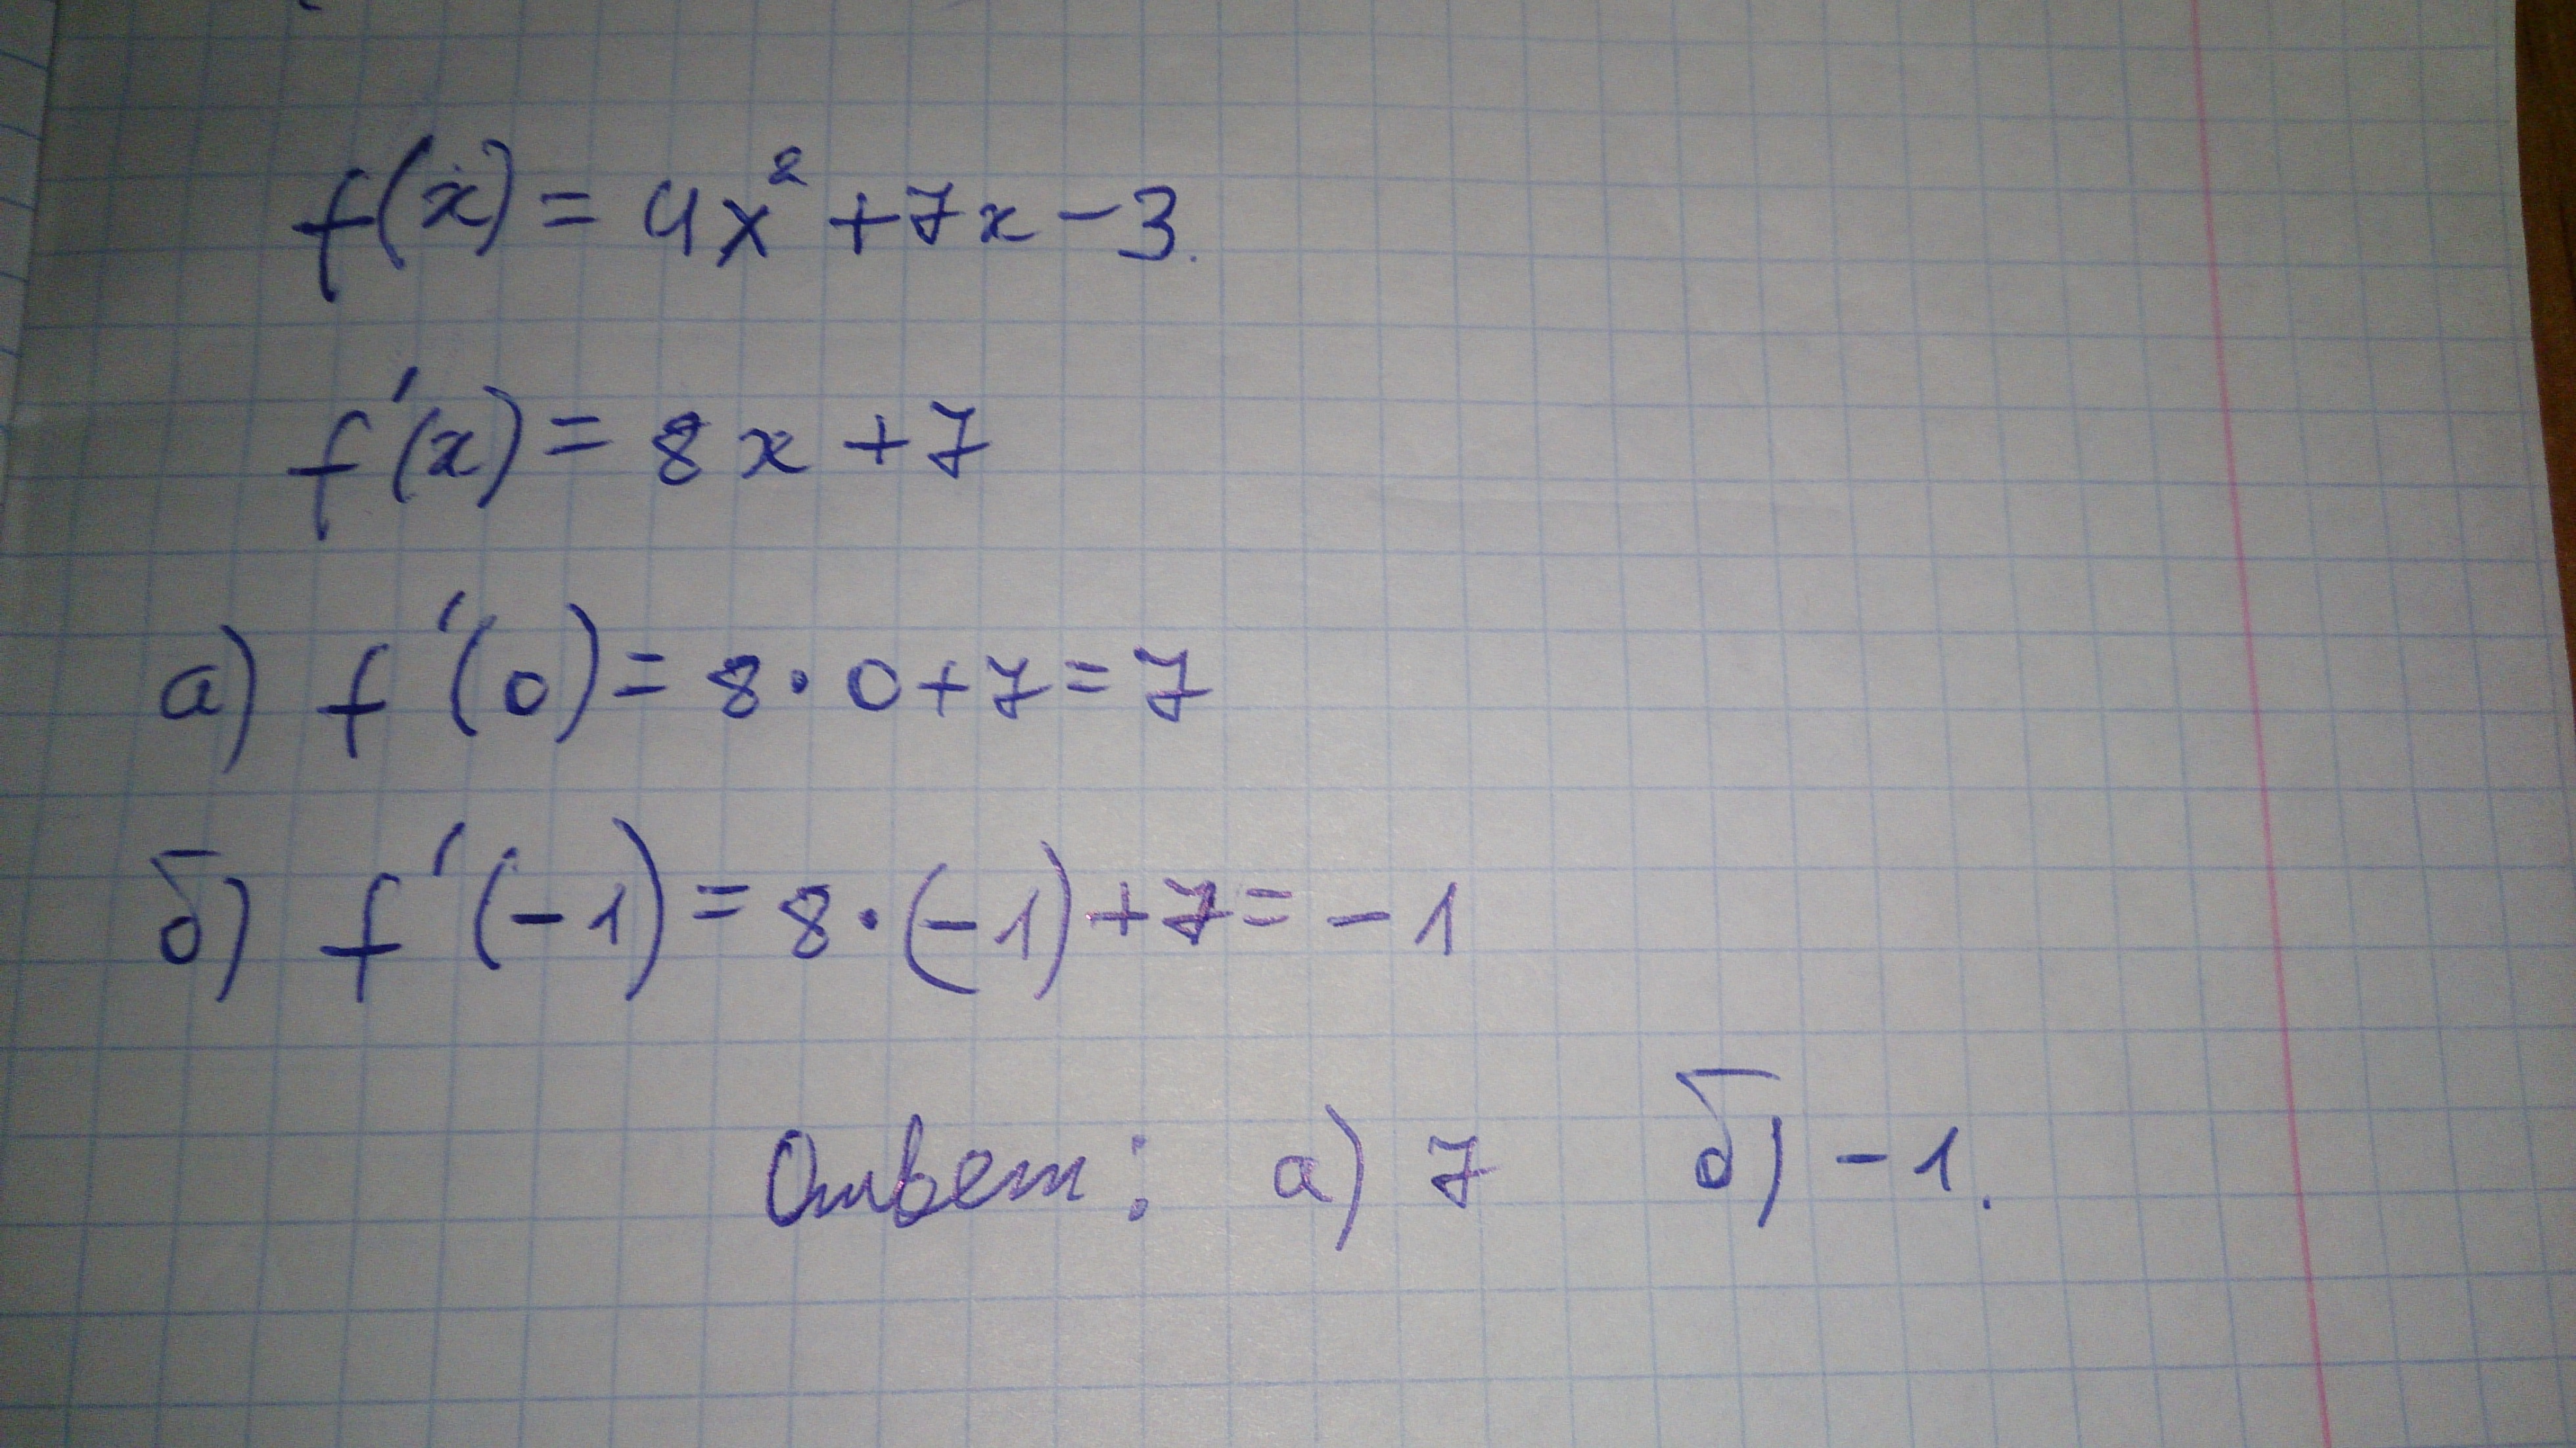 f(x) = 4x² + 7x - 3.
f'(x) = 8x + 7
а) f'(0) = 8 · 0 + 7 = 7
б) f'(-1) = 8 · (-1) + 7 = -1
Ответ: а) 7 б) -1.